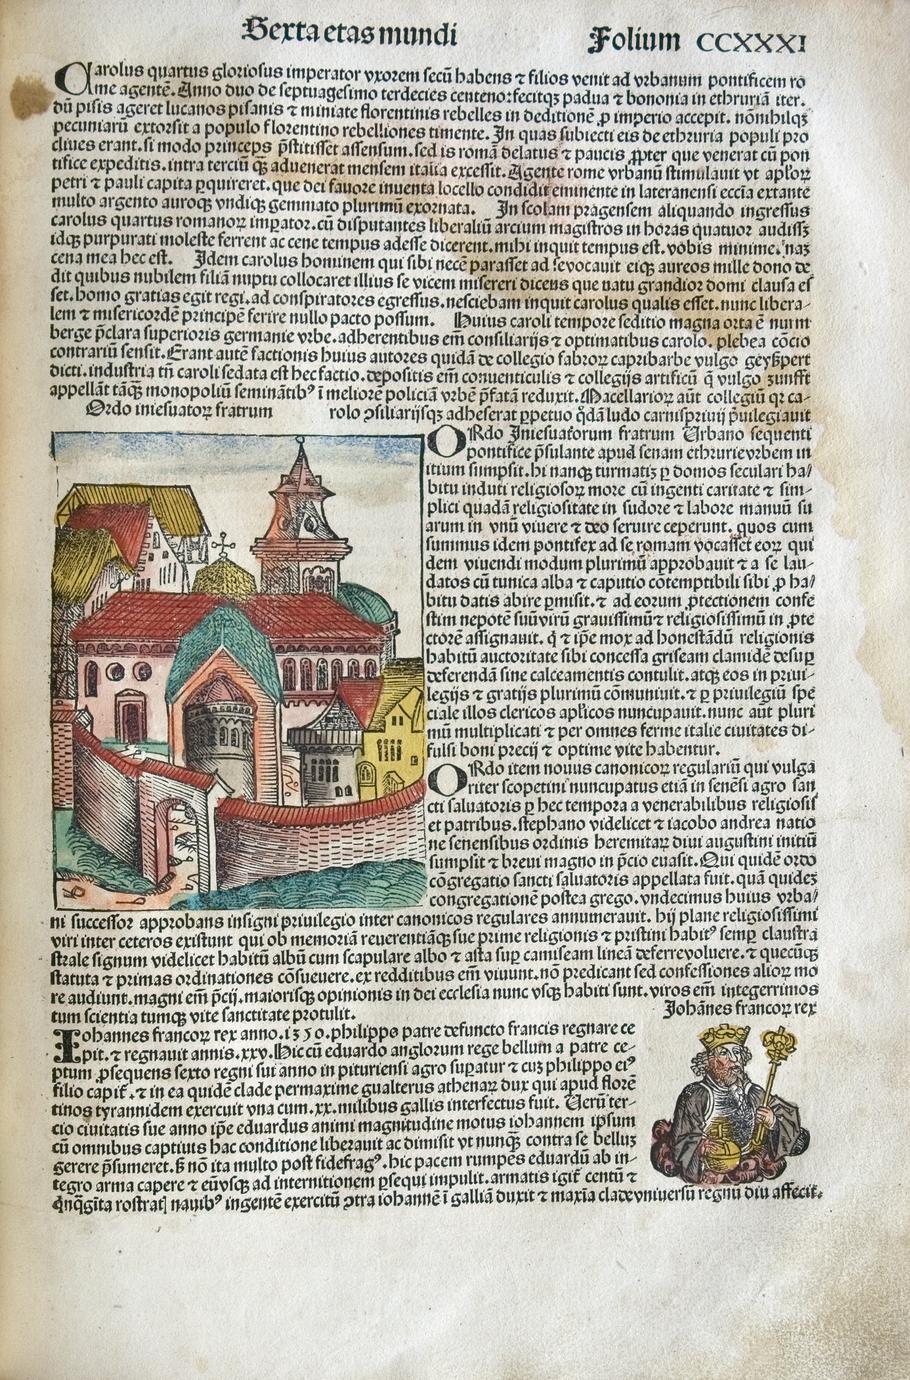 Sexta etas mundi
Folium CCXXXI
Carolus quartus gloriosus imperator vxorem secū habens ⁊ filios venit ad vrbanum pontificem ro
me agentē. Anno duo de septuagesimo terdecies centeno: fecitqꝫ padua ⁊ bononia in ethruriā iter.
dū pisis ageret lucanos pisanis ⁊ miniate florentinis rebelles in deditionē ꝓ imperio accepit. nōnihilqꝫ
pecuniarū extorsit a populo florentino rebelliones timente. In quas subiecti eis de ethruria populi pro
cliues erant. si modo princeps p̄stitisset assensum. sed is romā delatus ⁊ paucis ꝓpter que venerat cū pon
tifice expeditis. intra terciū qꝫ aduenerat mensem italia excessit. Agente rome vrbanū stimulauit vt apl'oꝝ
petri ⁊ pauli capita ꝑquireret. que dei fauore inuenta locello condidit eminente in lateranensi ecc̄ia extante
multo argento auroqꝫ vndiqꝫ gemmato plurimū exornata. In scolam pragensem aliquando ingressus
carolus quartus romanoꝝ imꝑator. cū disputantes liberaliū arcium magistros in horas quatuor audissꝫ
idqꝫ purpurati moleste ferrent ac cene tempus adesse dicerent. mihi inquit tempus est. vobis minime. naꝫ
cena mea hec est. Idem carolus hominem qui sibi necē parasset ad se vocauit eiqꝫ aureos mille dono de
dit quibus nubilem filiā nuptu collocaret illius se vicem misereri dicens que natu grandior domi clausa es
set. homo gratias egit regi. ad conspiratores egressus. nesciebam inquit carolus qualis esset. nunc libera-
lem ⁊ misericordē principē ferire nullo pacto possum. Huius caroli tempore seditio magna orta ē nurm
berge p̄clara superioris germanie vrbe. adherentibus em̄ consiliarijs ⁊ optimatibus carolo. plebea cōcio
contrariū sensit. Erant autē factionis huius autores quidā de collegio fabroꝝ capribarbe vulgo geyßpert
dicti. industria tn̄ caroli sedata est hec factio. depositis em̄ conuenticulis ⁊ collegijs artificū q̄ vulgo zunfft
appellāt tāqꝫ monopoliū seminātibꝰ ī meliorē policiā vrbē p̄fatā reduxit. Macellarioꝝ aūt collegiū qꝛ ca-
Ordo iniesuatoꝝ fratrum
rolo ꝯsiliarijsqꝫ adheserat ꝑpetuo q̊dā ludo carnispriuij p̄uilegiauit
ORdo Iniesuatorum fratrum Urbano sequenti
pontifice p̄sulante apud senam ethrurie vrbem in
itium sumpsit. hi nanqꝫ turmatiꝫ ꝑ domos seculari ha/
bitu induti religiosoꝝ more cū ingenti caritate ⁊ sim-
plici quadā religiositate in sudore ⁊ labore manuū su
arum in vnū viuere ⁊ deo seruire ceperunt. quos cum
summus idem pontifex ad se romam vocasset eoꝝ qui
dem viuendi modum plurimū approbauit ⁊ a se lau-
datos cū tunica alba ⁊ caputio cōtemptibili sibi ꝓ ha/
bitu datis abire ꝑmisit. ⁊ ad eorum ꝓtectionem confe
stim nepotē suū virū grauissimū ⁊ religiosissimū in ꝓte
ctorē assignauit. q̇ ⁊ ip̄e mox ad honestādū religionis
habitū auctoritate sibi concessa griseam clamidē desuꝑ
deferendā sine calceamentis contulit. atqꝫ eos in priui-
legijs ⁊ gratijs plurimū cōmuniuit. ⁊ ꝑ priuilegiū spe
ciale illos clericos apl'icos nuncupauit. nunc aūt pluri
mū multiplicati ⁊ per omnes ferme italie ciuitates di-
fulsi boni precij ⁊ optime vite habentur.
ORdo item nouus canonicoꝝ regulariū qui vulga
riter scopetini nuncupatus etiā in senēsi agro san
cti saluatoris ꝑ hec tempora a venerabilibus religiosis
et patribus. stephano videlicet ⁊ iacobo andrea natio
ne senensibus ordinis heremitaꝝ diui augustini initiū
sumpsit ⁊ breui magno in p̄cio euasit. Qui quidē ordo
cōgregatio sancti saluatoris appellata fuit. quā quideꝫ
congregationē postea grego. vndecimus huius vrba/
ni successor approbans insigni priuilegio inter canonicos regulares annumerauit. hij plane religiosissimi
viri inter ceteros existunt qui ob memoriā reuerentiāqꝫ sue prime religionis ⁊ pristini habitꝰ semꝑ claustra
strale signum videlicet habitū albū cum scapulare albo ⁊ asta suꝑ camiseam lineā deferre voluere. ⁊ quecūqꝫ
statuta ⁊ primas ordinationes cōsueuere. ex redditibus em̄ viuunt. nō predicant sed confessiones alioꝝ mo
re audiunt. magni em̄ p̄cij. maiorisqꝫ opinionis in dei ecclesia nunc vsqꝫ habiti sunt. viros em̄ integerrimos
tum scientia tumqꝫ vite sanctitate protulit.
Johānes francoꝝ rex
Iohannes francoꝝ rex anno. 1350. philippo patre defuncto francis regnare ce
pit. ⁊ regnauit annis. xxv. Hic cū eduardo anglorum rege bellum a patre ce-
ptum ꝓsequens sexto regni sui anno in pituriensi agro suꝑatur ⁊ cuꝫ philippo eiꝰ
filio capit̄. ⁊ in ea quidē clade permaxime gualterus athenaꝝ dux qui apud florē
tinos tyrannidem exercuit vna cum. xx. milibus gallis interfectus fuit. Verū ter-
cio ciuitatis sue anno ip̄e eduardus animi magnitudine motus iohannem ipsum
cū omnibus captiuis hac conditione liberauit ac dimisit vt nunqꝫ contra se belluꝫ
gerere p̄sumeret. ß nō ita multo post fidefragꝰ. hic pacem rumpēs eduardū ab in-
tegro arma capere ⁊ eūvsqꝫ ad internitionem ꝑsequi impulit. armatis igit̄ centū ⁊
qnqg̃ita rostratꝭ nauibꝰ ingentē exercitū ꝯtra iohannē ī galliā duxit ⁊ maxīa clade vniuersū regnū diu affecit.